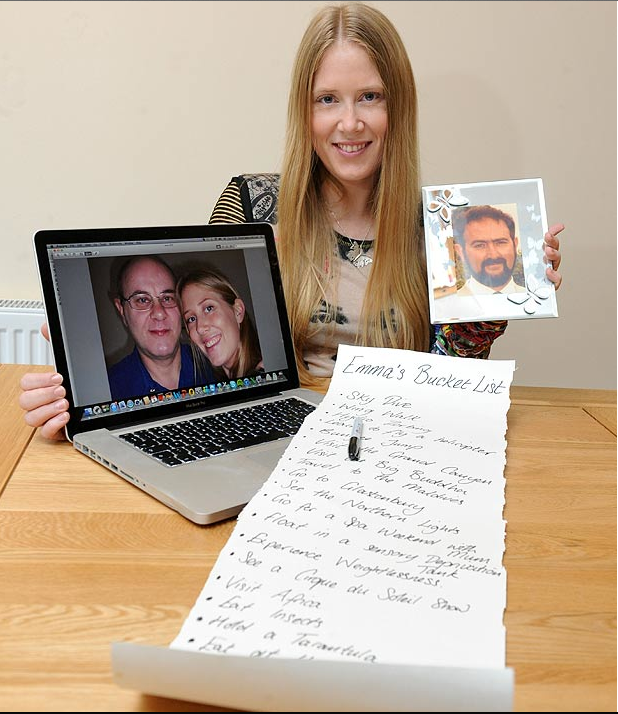 Emma's Bucket List
• Sky Dive
• Wing Walk
to Fly a Helicopter
Jump
Visit the Grand Canyon
Visit Big Buddha
Travel to the Maldives
• Go to Glastonbury
• See the Northern Lights
• Go for a Spa Weekend with Mum
• Float in a sensory Deprivation Tank
• Experience Weightlessness
• See a Cirque du Soleil Show
• Visit Africa
• Eat Insects
• Hold a Tarantula
• Eat at